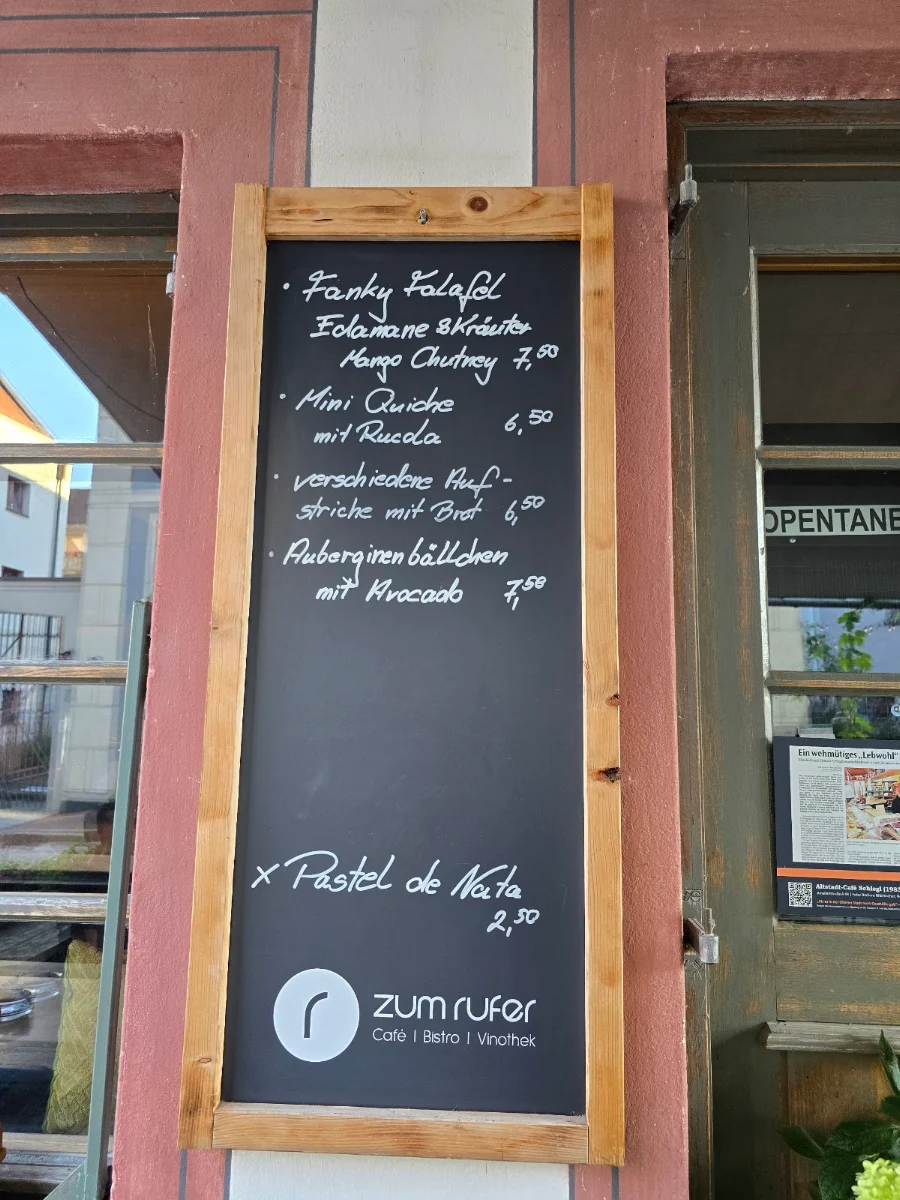 • Fanky Falafel
Edamame & Kräuter
Mango Chutney 7,50
• Mini Quiche
mit Rucola 6,50
• verschiedene Auf-
striche mit Brot 6,50
• Auberginenbällchen
mit Avocado 7,50
x Pastel de Nata
2,50
r
zum rufer
Café | Bistro | Vinothek
OPENTANE
Ein wehmütiges „Lebwohl"
Altstadt-Café Schlegl (1983